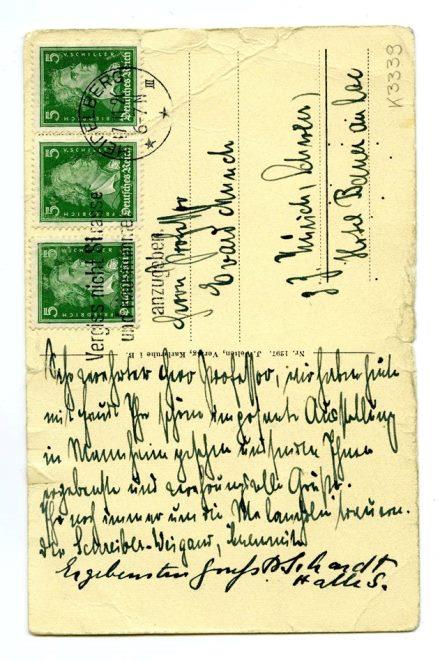 V. SCHILLER
5
Deutsches Reich
FRIEDRICH
5
Deutsches Reich
FRIEDRICH
5
HEIDELBERG
6-7 N
III
Vergiss nicht Strasse
und Hausnummer
anzugeben
K 3339
Herrn Professor
Edvard Munch
Zürich, Schweiz
Hotel Baur au Lac
Nr. 1297. J. Velten, Verlag, Karlsruhe i. B.
Sehr verehrter Herr Professor, wir haben heute
mit Freude Ihre schöne imposante Ausstellung
in Mannheim gesehen und senden Ihnen
ergebenste und verehrungsvolle Grüße.
Ihr noch immer um die Melancholie
der Schreiber-Weigand, Chemnitz
Ergebensten Gruß Schardt
Halle S.